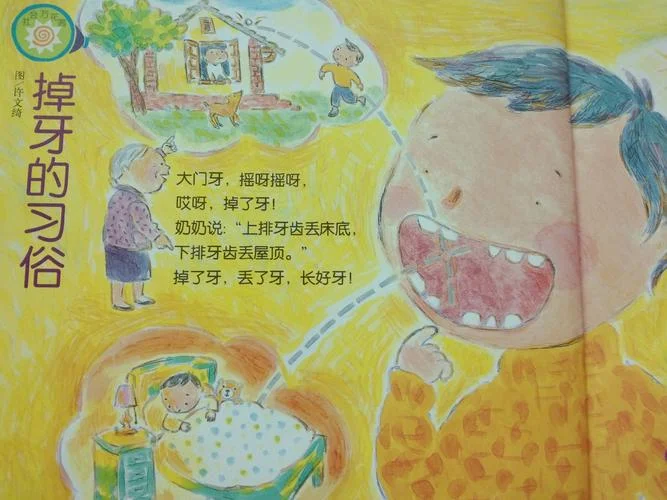 社会万花筒
掉牙的习俗
图/许文绮
大门牙，摇呀摇呀，
哎呀，掉了牙！
奶奶说：“上排牙齿丢床底，
下排牙齿丢屋顶。”
掉了牙，丢了牙，长好牙！